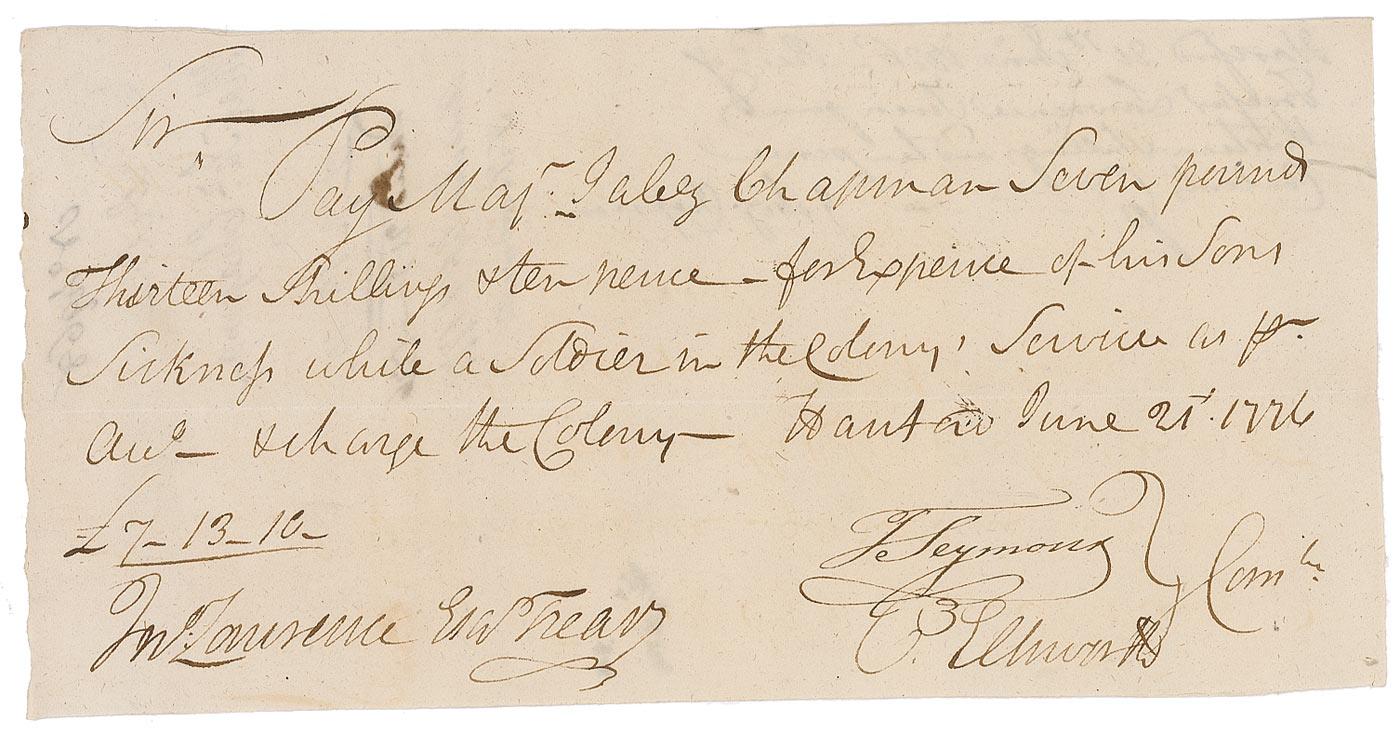 Sir
Pay Majr. Jabez Chapman Seven pound
Thirteen Shillings & ten pence – for Expence of his Sons
Sickness while a Soldier in the Colony' Service as pr
Acct – & charge the Colony – June 21t. 1776
£7–13–10–
T Seymour
Jno. Lawrence Esqr Treasr Comtee
O. Ellsworth